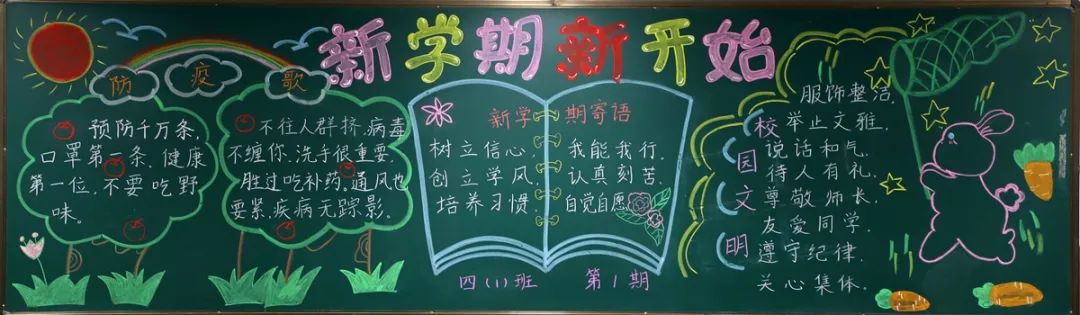 新学期新开始
防疫歌
预防千万条，
口罩第一条，健康
第一位，不要吃野
味。
不往人群挤，病毒
不缠你，洗手很重要，
胜过吃补药。通风也
要紧，疾病无踪影。
新学期寄语
树立信心，我能我行，
创立学风，认真刻苦，
培养习惯，自觉自愿。
四(1)班 第1期
校园文明
服饰整洁，
举止文雅，
说话和气，
待人有礼，
尊敬师长，
友爱同学，
遵守纪律，
关心集体。